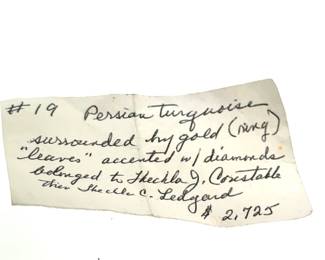 #19 Persian turquoise
surrounded by gold (ring)
"leaves" accented w/ diamonds
belonged to Theckla J. Constable
then Theckla C. Ledyard
$ 2,725